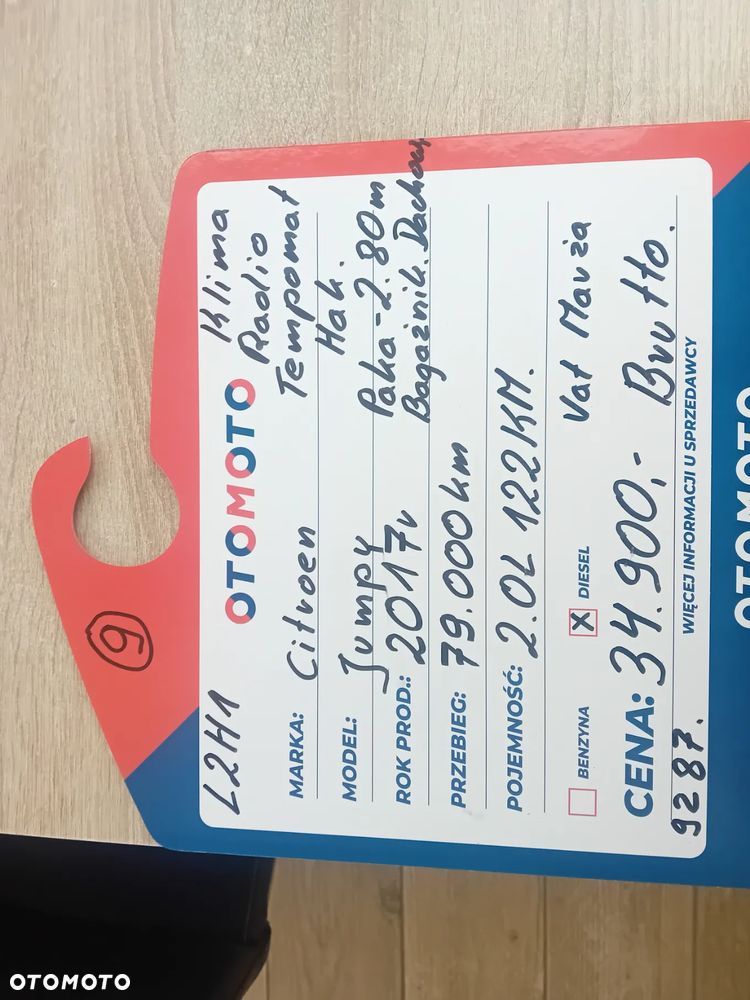 9
L2H1
OTOMOTO
Klima
Radio
Tempomat
Hak.
Paka - 2.80m
Bagażnik. Dachowy
MARKA: Citroen
MODEL: Jumpy
ROK PROD.: 2017r
PRZEBIEG: 79.000 km
POJEMNOŚĆ: 2.0L 122KM.
BENZYNA
X DIESEL
Vat Marża
CENA: 34.900,- Brutto.
9287.
WIĘCEJ INFORMACJI U SPRZEDAWCY
OTOMOTO
OTOMOTO